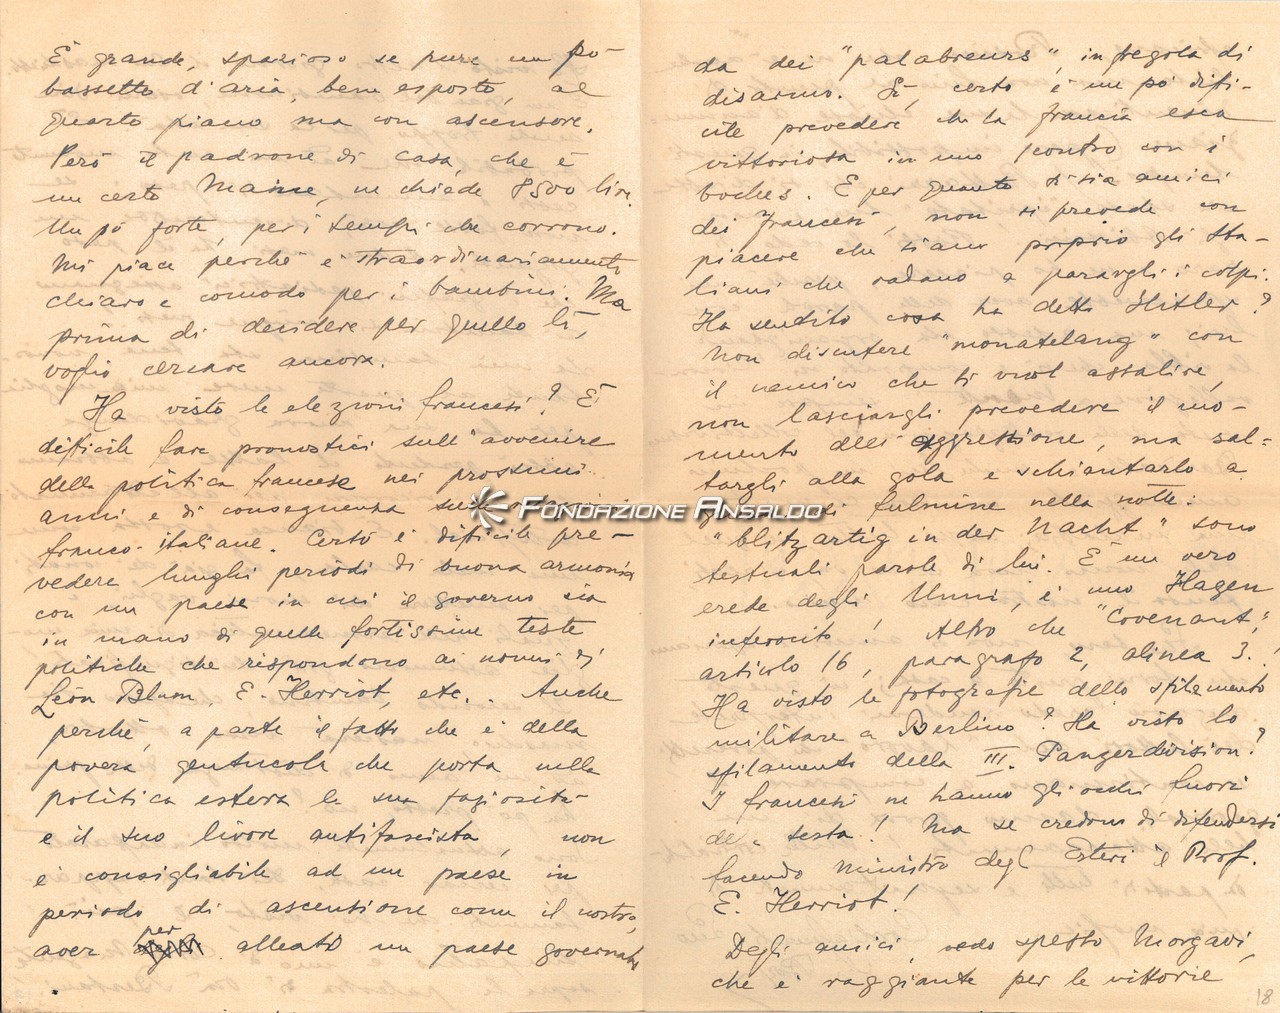 È grande, spazioso se pure un pò
bassetto d'aria, bene esposto, al
quarto piano ma con ascensore.
Però il padrone di casa, che è
un certo ne chiede 8500 lire.
Un pò forte, per i tempi che corrono.
Mi piace perché è straordinariamente
chiaro e comodo per i bambini. Ma
prima di decidere per quello lì,
voglio cercare ancora.
Ha visto le elezioni francesi? È
difficile fare pronostici sull'avvenire
della politica francese nei prossimi
anni e di conseguenza
franco-italiane. Certo è difficile pre-
vedere lunghi periodi di buona armonia
con un paese in cui il governo sia
in mano di quelle fortissime teste
politiche che rispondono ai nomi di
Léon Blum, E. Herriot, etc. Anche
perché, a parte il fatto che è della
povera genticola che porta nella
politica estera la sua faziosità
e il suo livore antifascista, non
è consigliabile ad un paese in
periodo di ascensione come il nostro,
aver per alleato un paese governato
da dei "palabreurs", in fregola di
disarmo. Sì, certo è un pò diffi-
cile prevedere che la Francia esca
vittoriosa in uno scontro con i
boches. E per quanto si sia amici
dei francesi, non si prevede con
piacere che siano proprio gli Ita-
liani che vadano a parargli i colpi.
Ha sentito cosa ha detto Hitler?
Non discutere "monatelang" con
il nemico che ti vuol assalire,
non lasciargli prevedere il mo-
mento dell'aggressione, ma sal-
targli alla gola e schiantarlo a
fulmine nella notte:
"blitzartig in der Nacht" sono
testuali parole di lui. È un vero
erede degli Unni, è uno Hagen
inferocito! Altro che "Covenant",
articolo 16, paragrafo 2, alinea 3.!
Ha visto le fotografie dello sfilamento
militare a Berlino? Ha visto lo
sfilamento della III. Panzerdivision?
I francesi ne hanno gli occhi fuori
testa! Ma se credono di difendersi
facendo ministro degli Esteri il Prof.
E. Herriot!
Degli amici, vedo spesso Morgavi,
che è raggiante per le vittorie
18
Fondazione Ansaldo